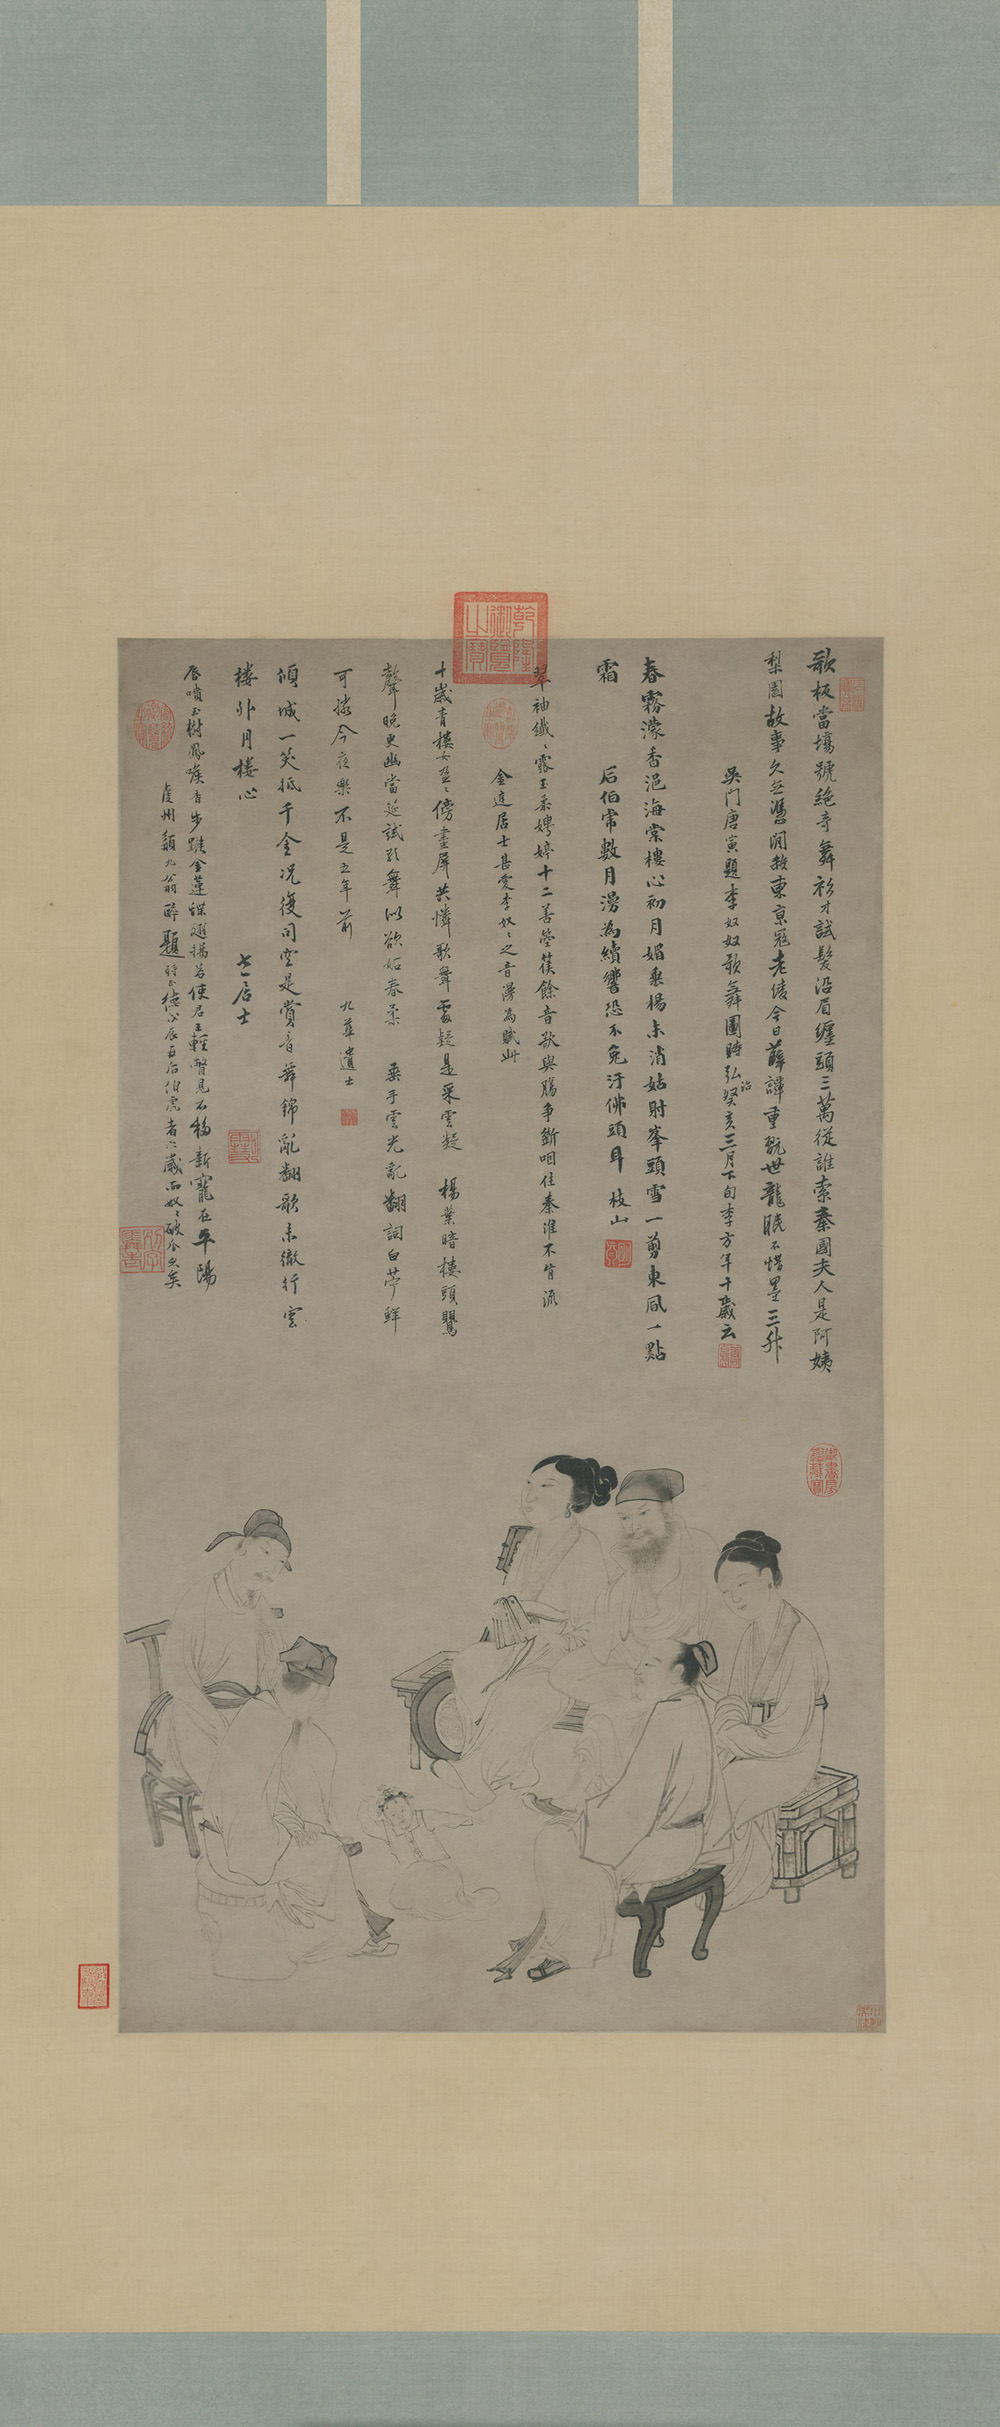 歌板當場號絕奇舞衫才試髮沿眉纏頭三萬從誰索秦國夫人是阿姨
梨園故事久無憑閒殺東京冠老陵今日薛譚重玩世龍眠不惜墨三升
吳門唐寅題李奴奴歌舞圖時弘治癸亥三月下旬李方年十歲云
春霧濛香浥海棠樓心初月媚垂楊未消姑射峯頭雪一剪東風一點
霜
后伯虎數月漫為續響恐不免汙佛頭耳 枝山
翠袖纖纖露玉柔娉婷十二善箜篌餘音欲與腸爭斷咽住秦淮不肯流
金逵居士甚愛李奴奴之音漫為賦此
十歲青樓女盈盈傍畫屏共憐歌舞處疑是采雲凝 楊葉暗樓頭鶯
聲晚更幽當筵試歌舞似欲妬春柔 垂手雲光亂翻詞白苧鮮
可憐今夜樂不是五年前
九華遺士
傾城一笑抵千金況復司空是賞音舞錦亂翻歌未徹行雲
樓外月樓心
七居士
唇噴玉樹鳳喉香步蹴金蓮蝶翅揚若使君王輕瞥見不移新寵在平陽
虔州穎九翁醉題時正德戊辰五后伯虎者六歲而奴奴破瓜久矣
乾隆御覽之寶